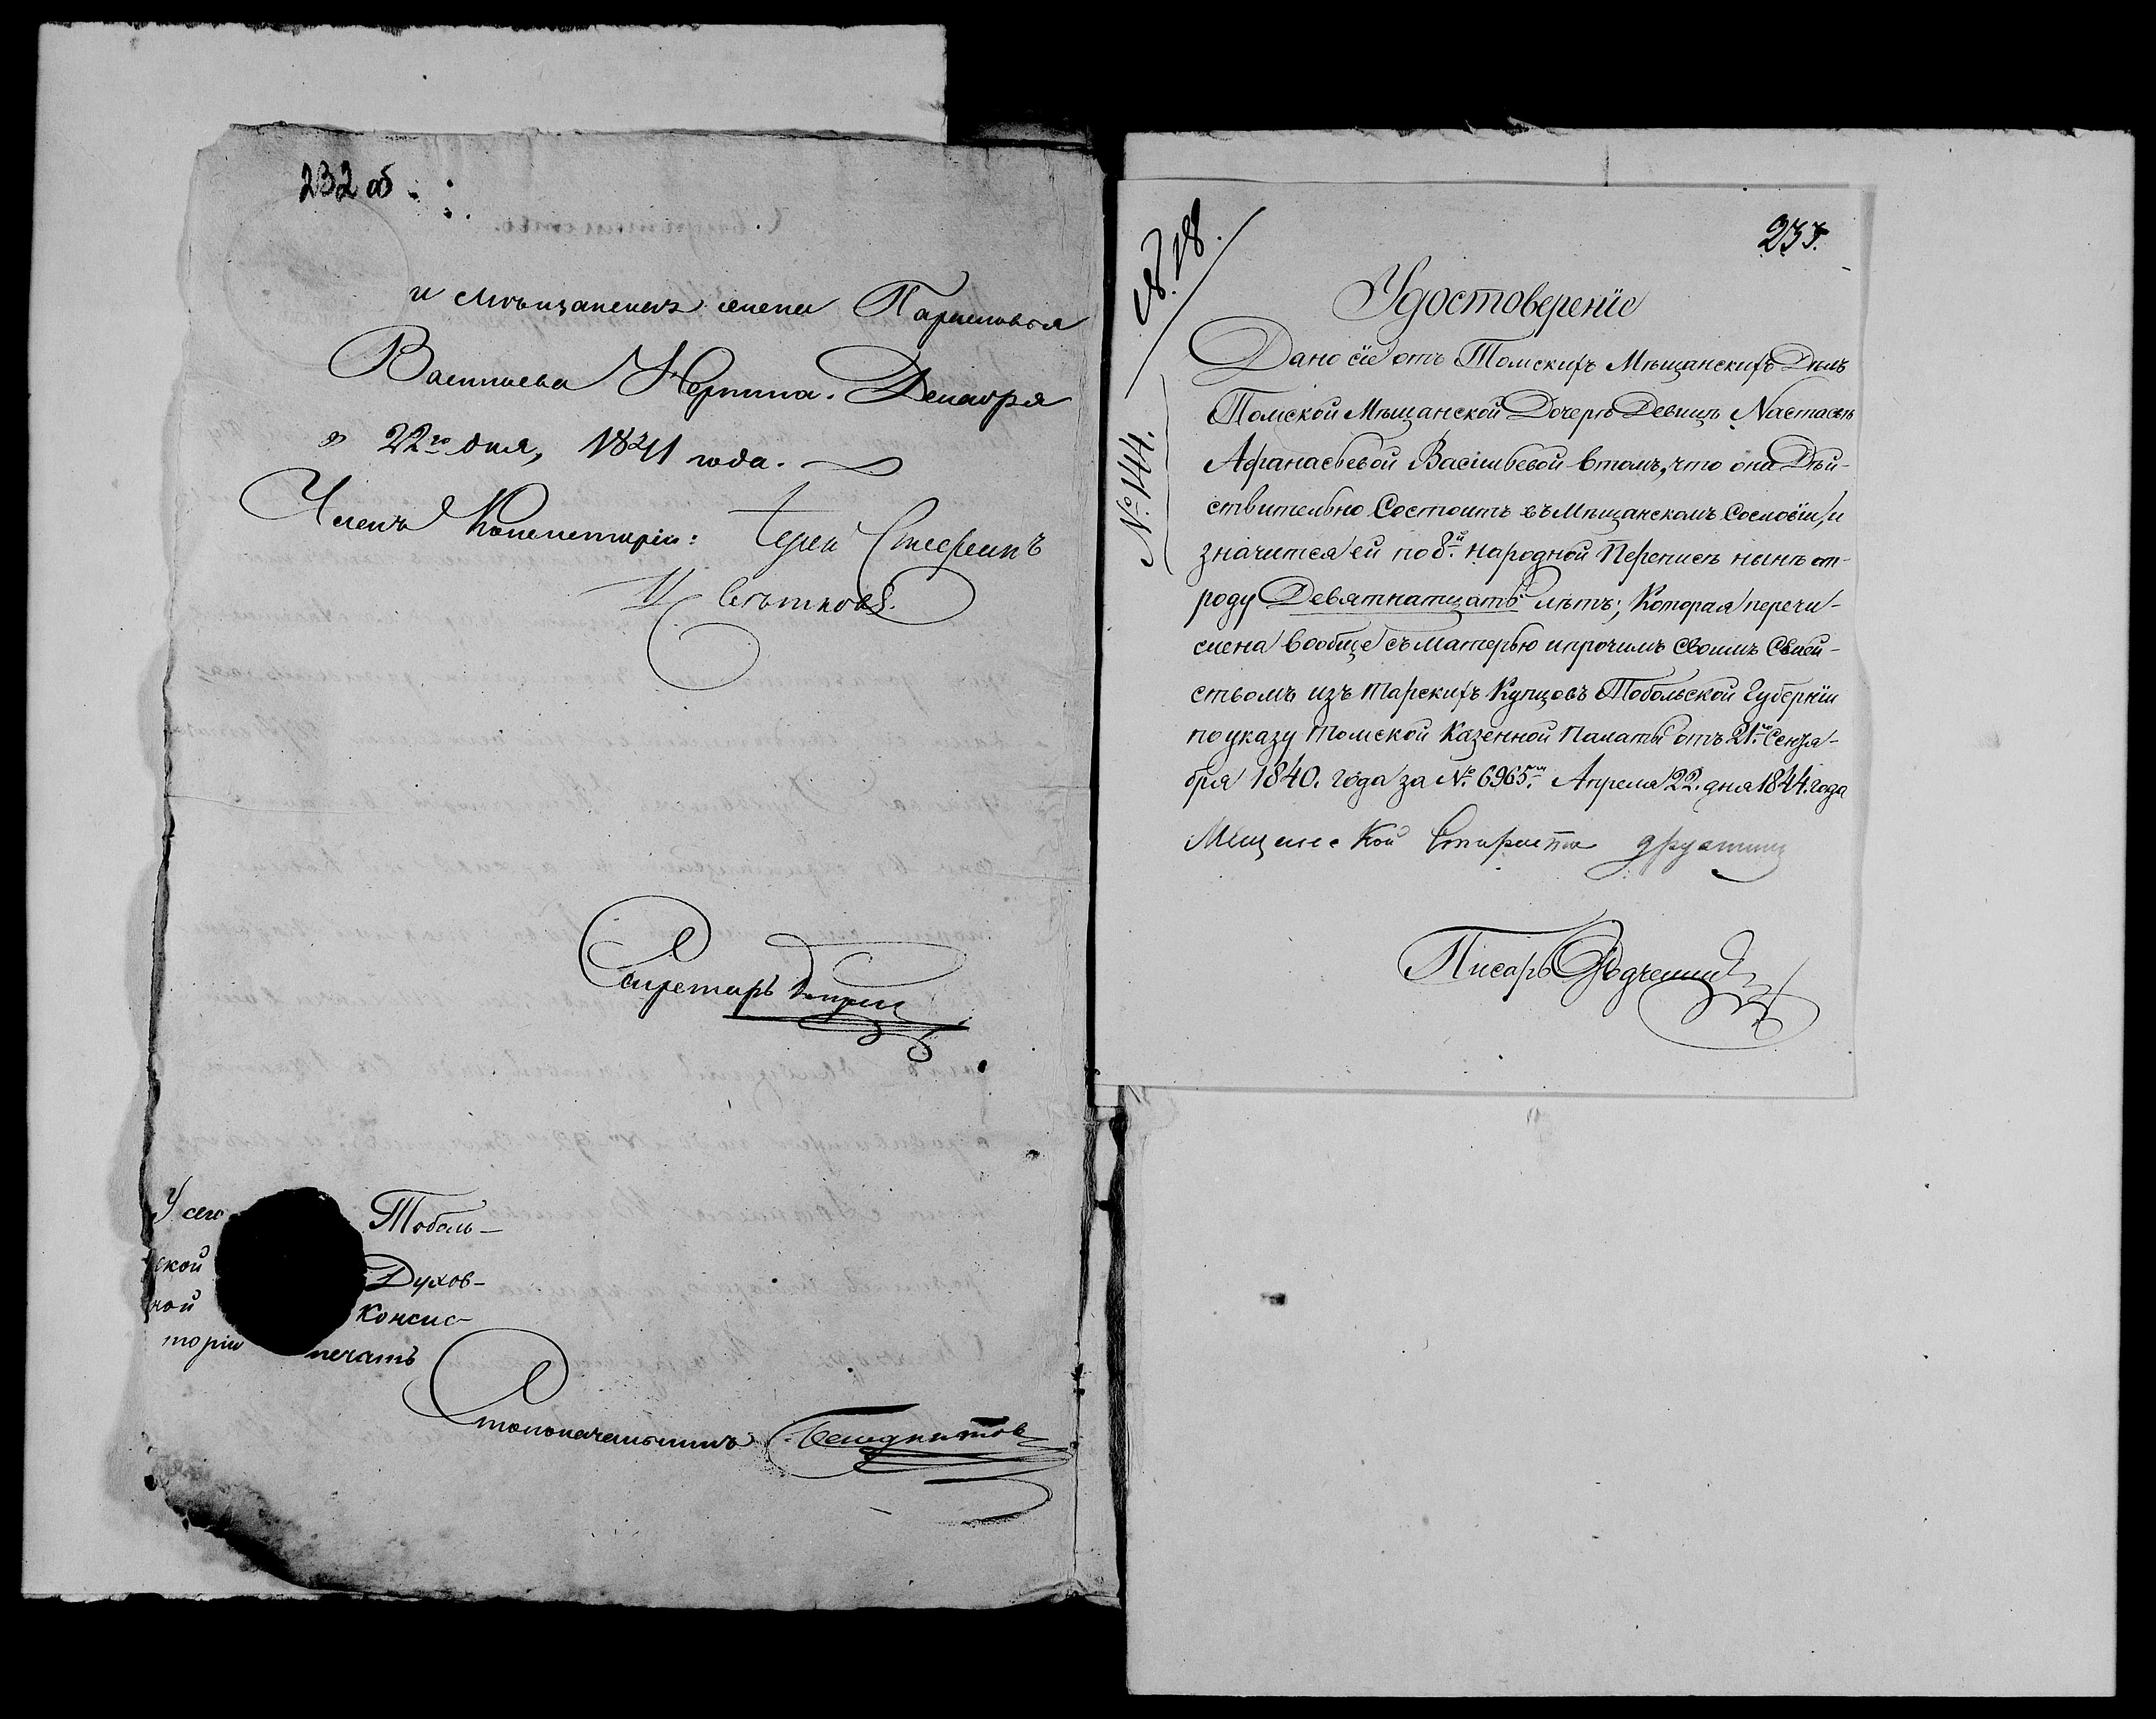 232 об
и мѣщанская жена Парасковья
Васильева Нерпина. Декабря
22го дня, 1841 года.
Членъ Консисторіи: Іерей Стефанъ
Секретарь
У сего Тоболь-
ской Духов-
ной Консис-
торіи печать
Столоначальникъ
233.
св. 18.
№ 144.
Удостоверенiе
Дано сiе отъ Томскихъ Мѣщанскихъ Дѣлъ
Томской Мѣщанской Дочерѣ Девицѣ Настасьѣ
Афанасьевой Васiльевой втомъ, что она Дѣй-
ствительно Состоитъ въ Мѣщанскомъ Сословiи, и
значится ей по 8й народной Переписѣ нынѣ от-
роду Девятнатцать лѣтъ; Которая перечи-
слена вообще съ матерью ипрочимъ своимъ Свой-
ствомъ изъ Тарскихъ Купцовъ Тобольской Губернiи
поуказу Томской Казенной Палаты отъ 21го Сентя-
бря 1840. года за № 6965мъ Апреля 22. дня 1844. года
Мещанской Староста
Писарь